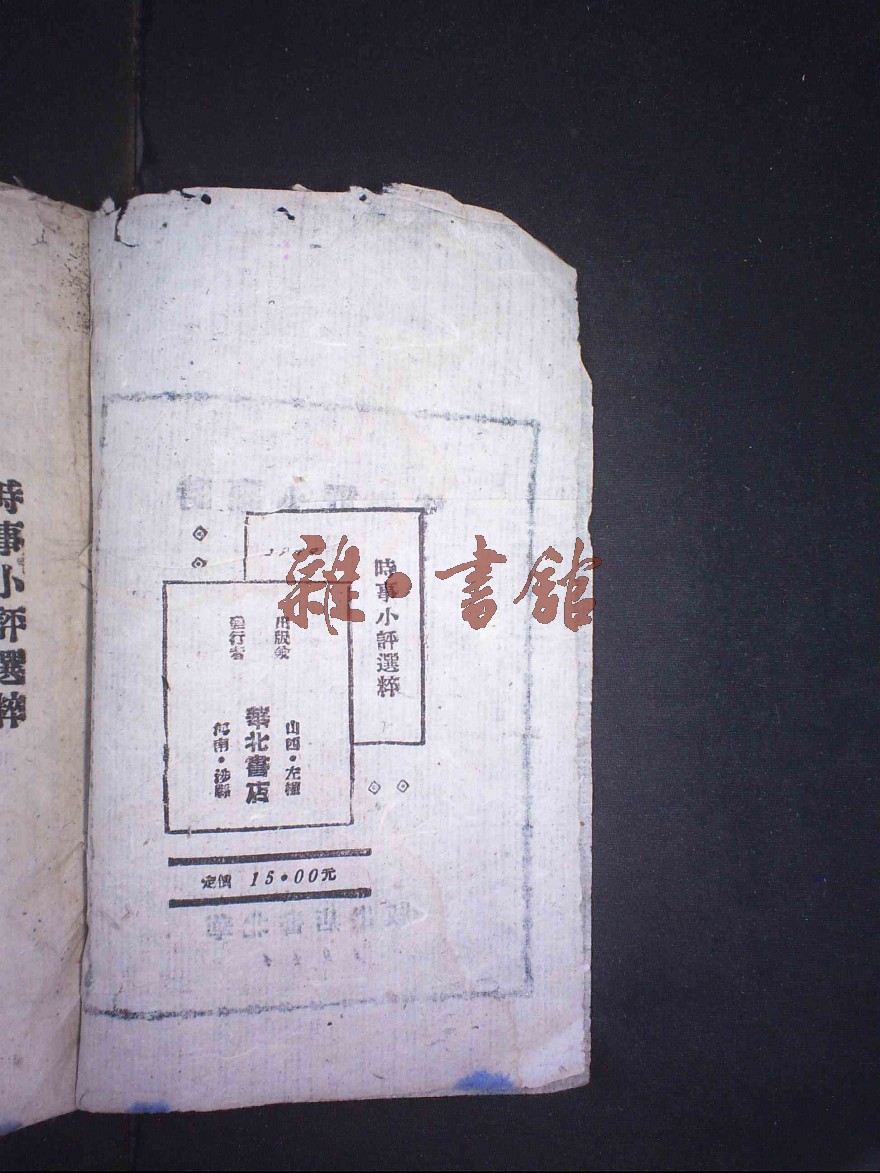 時事小評選粹
時事小評選粹
出版兼
發行者
華北書店
山西·左權
河南·涉縣
定價 15·00元
雜·書館